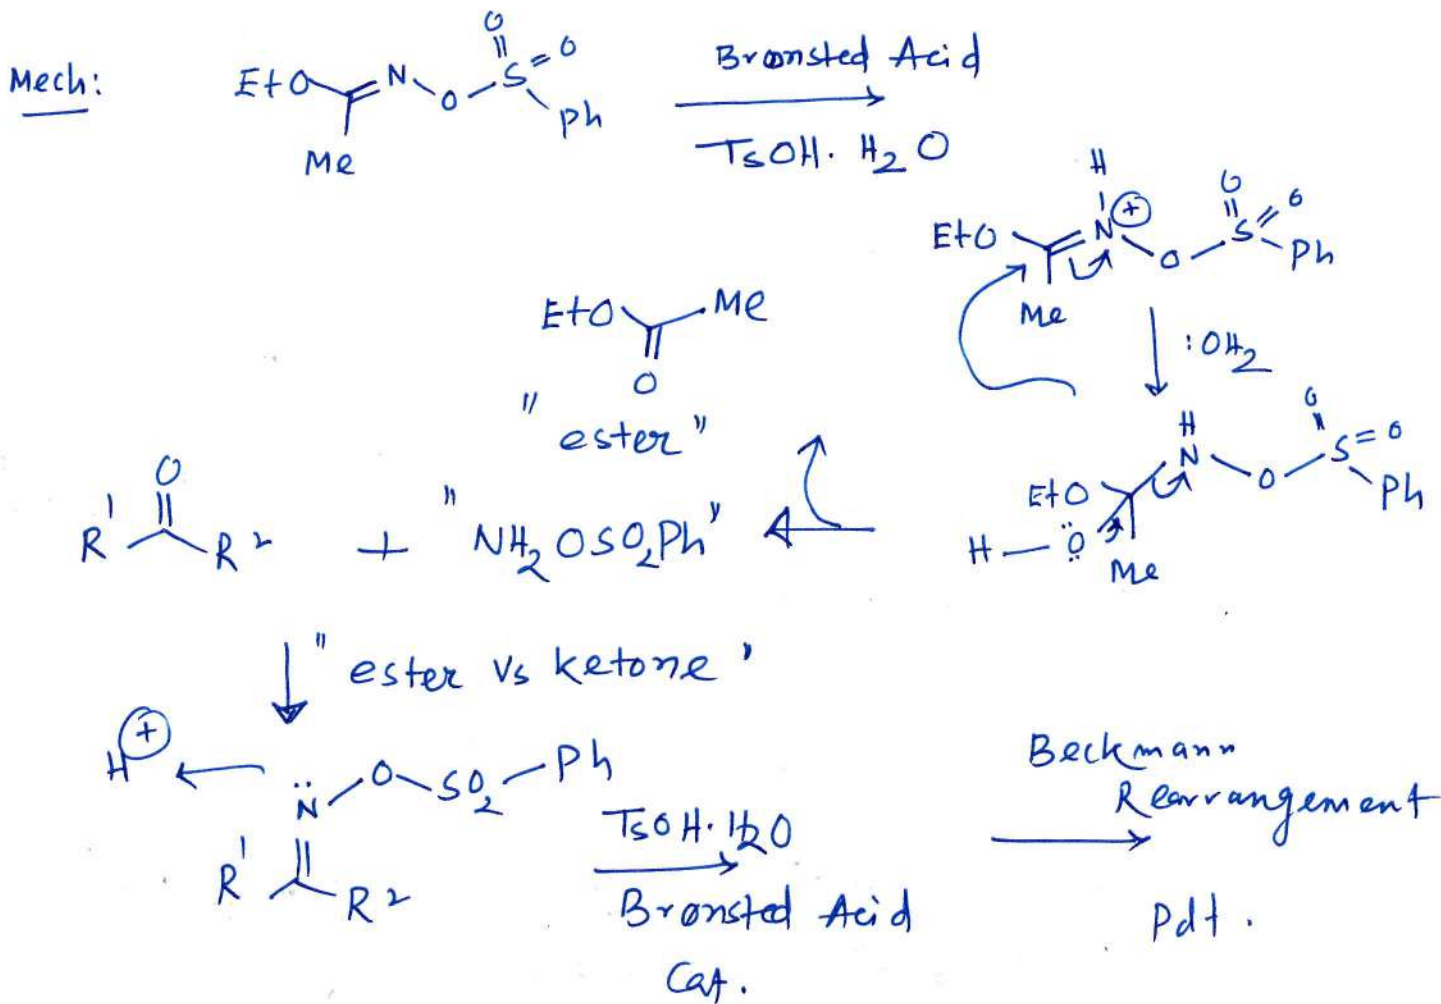 Mech:
EtO N O S O O Ph Me
Brønsted Acid
TsOH. H2O
EtO N H + O S O O Ph Me
:OH2
EtO Me O
"ester"
EtO N H O S O O Ph
H — O Me
O R1 R2 + "NH2OSO2Ph"
"ester vs ketone"
H+ N O SO2 Ph
R1 R2
TsOH.H2O
Brønsted Acid
Cat.
Beckmann
Rearrangement
Pdt.